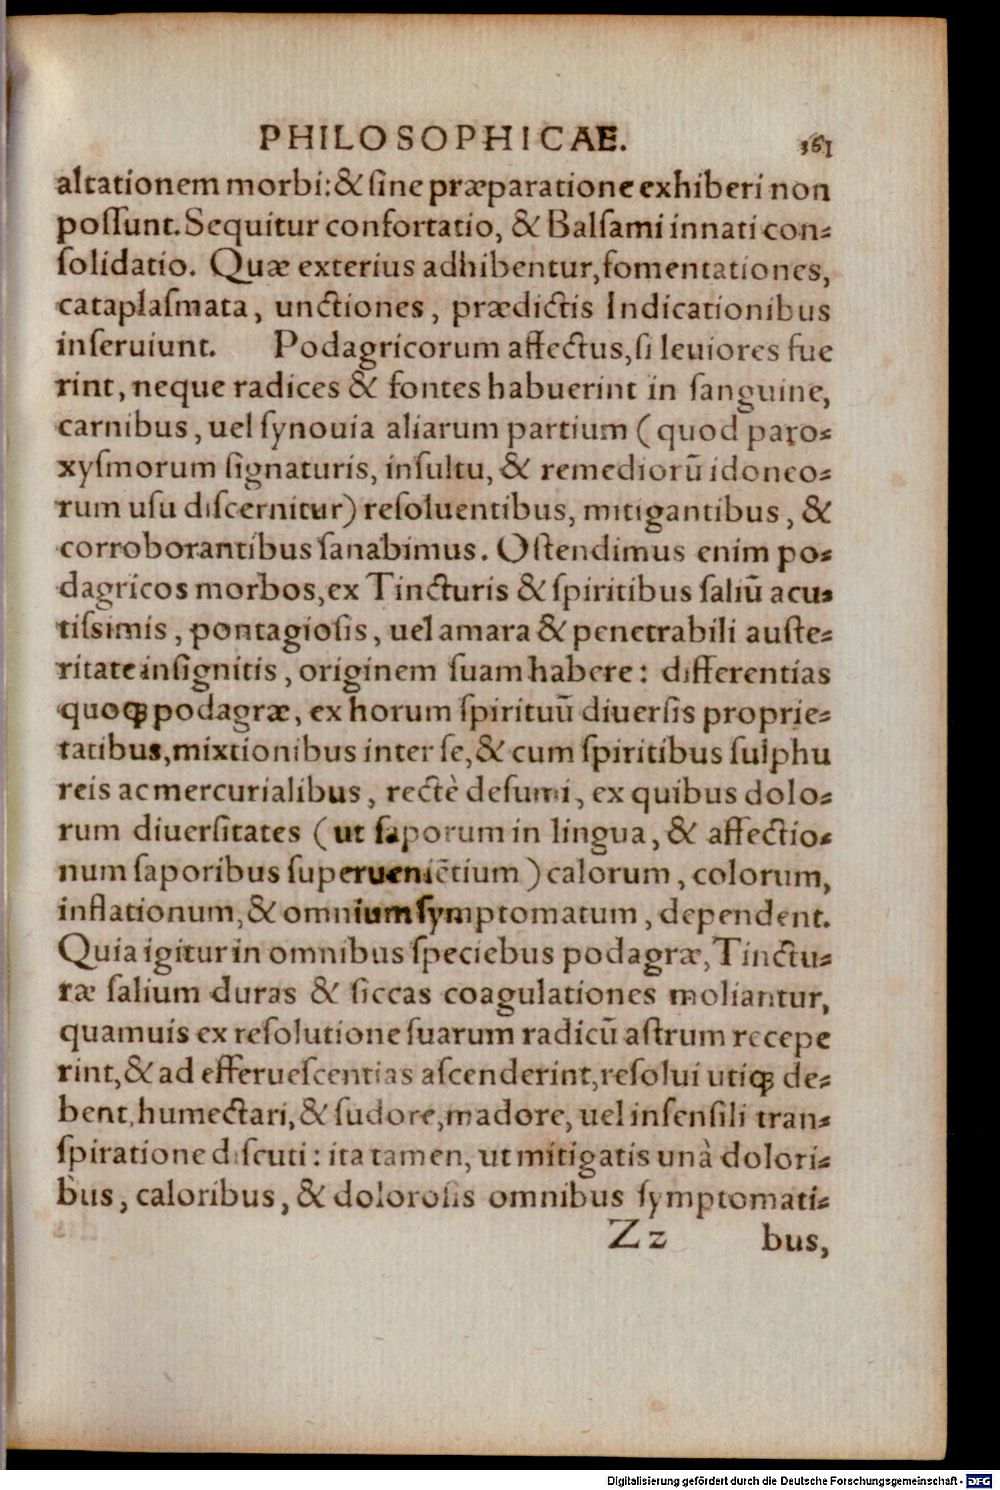 PHILOSOPHICAE. 361
altationem morbi: & ſine præparatione exhiberi non
poſſunt. Sequitur confortatio, & Balſami innati con-
ſolidatio. Quæ exterius adhibentur, fomentationes,
cataplaſmata, unctiones, prædictis Indicationibus
inſeruiunt. Podagricorum affectus, ſi leuiores fue
rint, neque radices & fontes habuerint in ſanguine,
carnibus, uel ſynouia aliarum partium (quod paro-
xyſmorum ſignaturis, inſultu, & remediorũ idoneo-
rum uſu diſcernitur) reſoluentibus, mitigantibus, &
corroborantibus ſanabimus. Oſtendimus enim po-
dagricos morbos, ex Tincturis & ſpiritibus ſaliũ acu-
tiſsimis, pontagioſis, uel amara & penetrabili auſte-
ritate inſignitis, originem ſuam habere: differentias
quoqꝫ podagræ, ex horum ſpirituũ diuerſis proprie-
tatibus, mixtionibus inter ſe, & cum ſpiritibus ſulphu
reis ac mercurialibus, rectè deſumi, ex quibus dolo-
rum diuerſitates (ut ſaporum in lingua, & affectio-
num ſaporibus ſuperueniẽtium) calorum, colorum,
inflationum, & omnium ſymptomatum, dependent.
Quia igitur in omnibus ſpeciebus podagræ, Tinctu-
ræ ſalium duras & ſiccas coagulationes moliantur,
quamuis ex reſolutione ſuarum radicũ aſtrum recepe
rint, & ad efferueſcentias aſcenderint, reſolui utiqꝫ de-
bent, humectari, & ſudore, madore, uel inſenſili tran-
ſpiratione diſcuti: ita tamen, ut mitigatis unà dolori-
bus, caloribus, & doloroſis omnibus ſymptomati-
Zz bus,
Digitalisierung gefördert durch die Deutsche Forschungsgemeinschaft - DFG